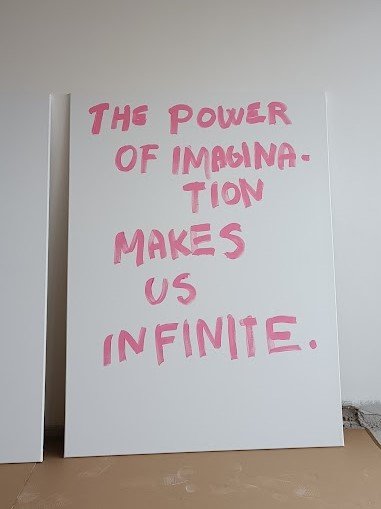 THE POWER
OF IMAGINA-
TION
MAKES
US
INFINITE.